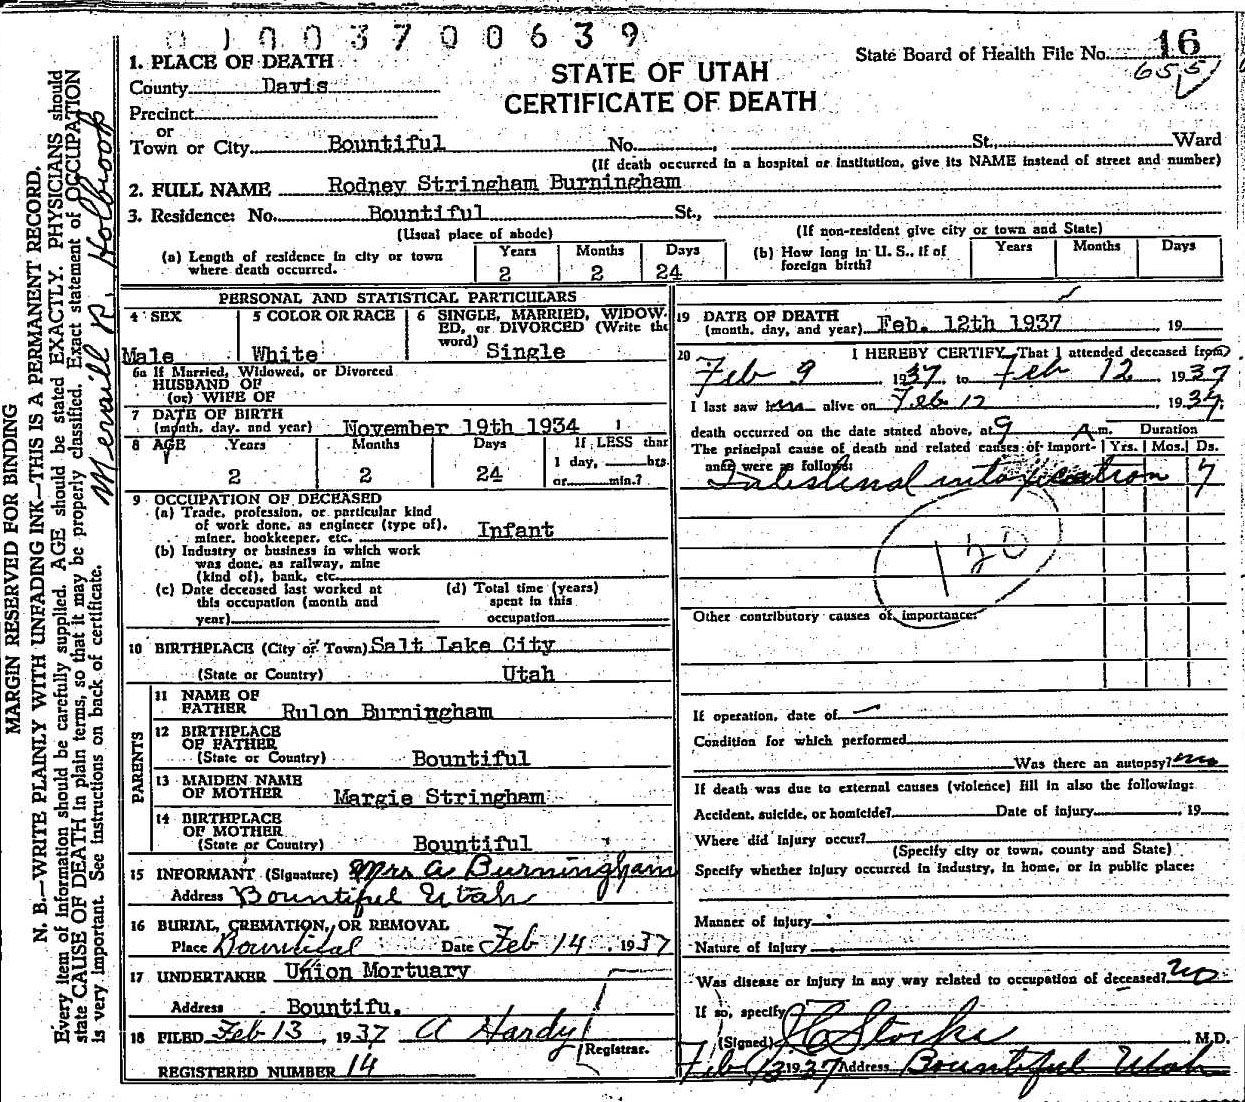 01003700639
State Board of Health File No. 16
655
STATE OF UTAH
CERTIFICATE OF DEATH
1. PLACE OF DEATH
County Davis
Precinct
or
Town or City Bountiful No. , St., Ward
(If death occurred in a hospital or institution, give its NAME instead of street and number)
2. FULL NAME Rodney Stringham Burningham
3. Residence: No. Bountiful St.,
(Usual place of abode) (If non-resident give city or town and State)
(a) Length of residence in city or town where death occurred. Years 2 Months 2 Days 24 (b) How long in U. S., if of foreign birth? Years Months Days
PERSONAL AND STATISTICAL PARTICULARS
4 SEX Male
5 COLOR OR RACE White
6 SINGLE, MARRIED, WIDOW-
ED, or DIVORCED (Write the
word) Single
6a If Married, Widowed, or Divorced
HUSBAND OF
(or) WIFE OF
7 DATE OF BIRTH
(month, day, and year) November 19th 1934
8 AGE Years 2 Months 2 Days 24 If LESS than
1 day, hrs.
or min.?
9 OCCUPATION OF DECEASED
(a) Trade, profession, or particular kind
of work done, as engineer (type of),
miner, bookkeeper, etc. Infant
(b) Industry or business in which work
was done, as railway, mine
(kind of), bank, etc.
(c) Date deceased last worked at
this occupation (month and
year)
(d) Total time (years)
spent in this
occupation
10 BIRTHPLACE (City or Town) Salt Lake City
(State or Country) Utah
PARENTS
11 NAME OF
FATHER Rulon Burningham
12 BIRTHPLACE
OF FATHER
(State or Country) Bountiful
13 MAIDEN NAME
OF MOTHER Margie Stringham
14 BIRTHPLACE
OF MOTHER
(State or Country) Bountiful
15 INFORMANT (Signature) Mrs A Burningham
Address Bountiful Utah
16 BURIAL, CREMATION, OR REMOVAL
Place Bountiful Date Feb 14, 1937
17 UNDERTAKER Union Mortuary
Address Bountifu.
18 FILED Feb 13, 1937 A Hardy
Registrar.
REGISTERED NUMBER 14
19 DATE OF DEATH
(month, day, and year) Feb. 12th 1937 , 19
20 I HEREBY CERTIFY, That I attended deceased from
Feb 9, 1937 to Feb 12, 1937
I last saw him alive on Feb 12, 1937,
death occurred on the date stated above, at 9 A.m. Duration
The principal cause of death and related causes of import- Yrs. Mos. Ds.
ance were as follows:
Intestinal intoxication 7
120
Other contributory causes of importance:
If operation, date of —
Condition for which performed
Was there an autopsy? no
If death was due to external causes (violence) fill in also the following:
Accident, suicide, or homicide? Date of injury , 19
Where did injury occur?
(Specify city or town, county and State)
Specify whether injury occurred in industry, in home, or in public place:
Manner of injury
Nature of injury
Was disease or injury in any way related to occupation of deceased? no
If so, specify
(Signed) Stocks, M.D.
Feb 13 1937 Address Bountiful Utah
MARGIN RESERVED FOR BINDING
N. B.—WRITE PLAINLY WITH UNFADING INK—THIS IS A PERMANENT RECORD.
Every item of information should be carefully supplied. AGE should be stated EXACTLY. PHYSICIANS should
state CAUSE OF DEATH in plain terms, so that it may be properly classified. Exact statement of OCCUPATION
is very important. See instructions on back of certificate.
Merrill R. Holbrook